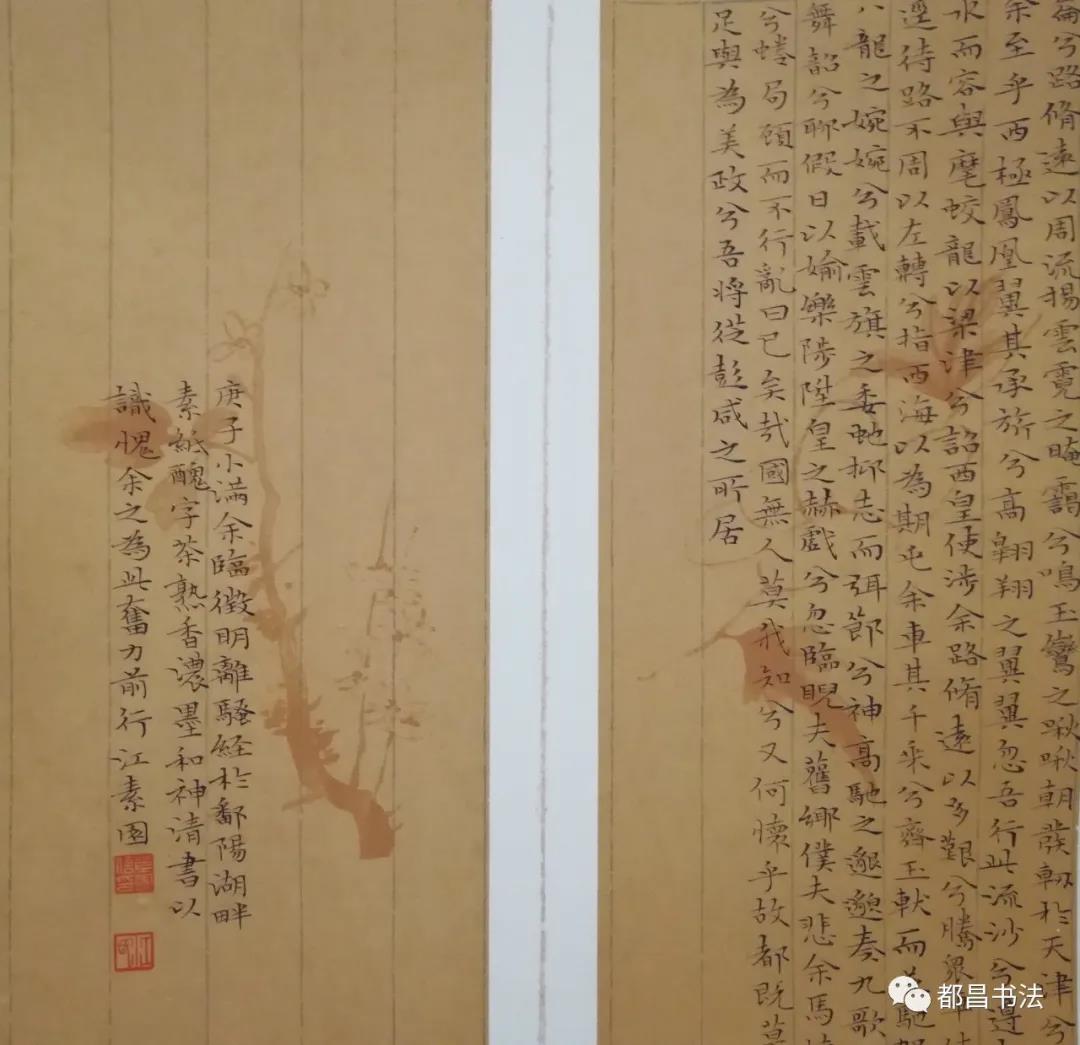 崙兮路脩遠以周流揚雲霓之晻靄兮鳴玉鸞之啾啾朝發軔於天津兮
余至乎西極鳳凰翼其承旂兮高翱翔之翼翼忽吾行此流沙兮遵
水而容與麾蛟龍以梁津兮詔西皇使涉余路脩遠以多艱兮騰眾車
逕待路不周以左轉兮指西海以為期屯余車其千乘兮齊玉軑而並馳
八龍之婉婉兮載雲旗之委虵抑志而弭節兮神高馳之邈邈奏九歌
舞韶兮聊假日以媮樂陟陞皇之赫戲兮忽臨睨夫舊鄉僕夫悲余馬
兮蜷局顧而不行亂曰已矣哉國無人莫我知兮又何懷乎故都既莫
足與為美政兮吾將從彭咸之所居
庚子小滿余臨徵明離騷經於鄱陽湖畔
素紙醜字茶熟香濃墨和神清書以
識愧余之為此奮力前行江素園
都昌书法